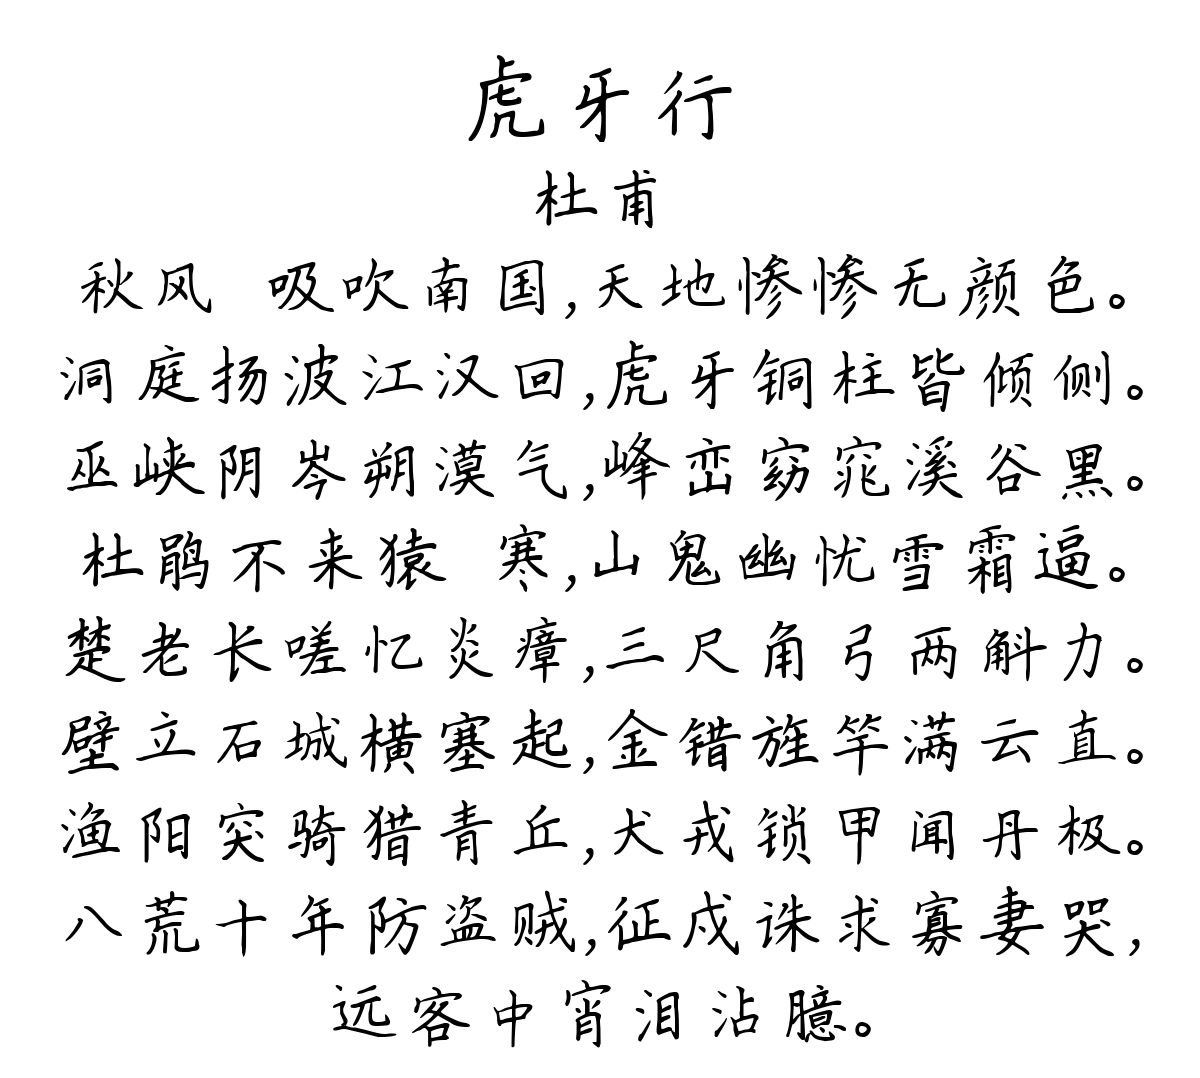 虎牙行
杜甫
秋风 吸吹南国,天地惨惨无颜色。
洞庭扬波江汉回,虎牙铜柱皆倾侧。
巫峡阴岑朔漠气,峰峦窈窕溪谷黑。
杜鹃不来猿 寒,山鬼幽忧雪霜逼。
楚老长嗟忆炎瘴,三尺角弓两斛力。
壁立石城横塞起,金错旌竿满云直。
渔阳突骑猎青丘,犬戎锁甲闻丹极。
八荒十年防盗贼,征戍诛求寡妻哭,
远客中宵泪沾臆。